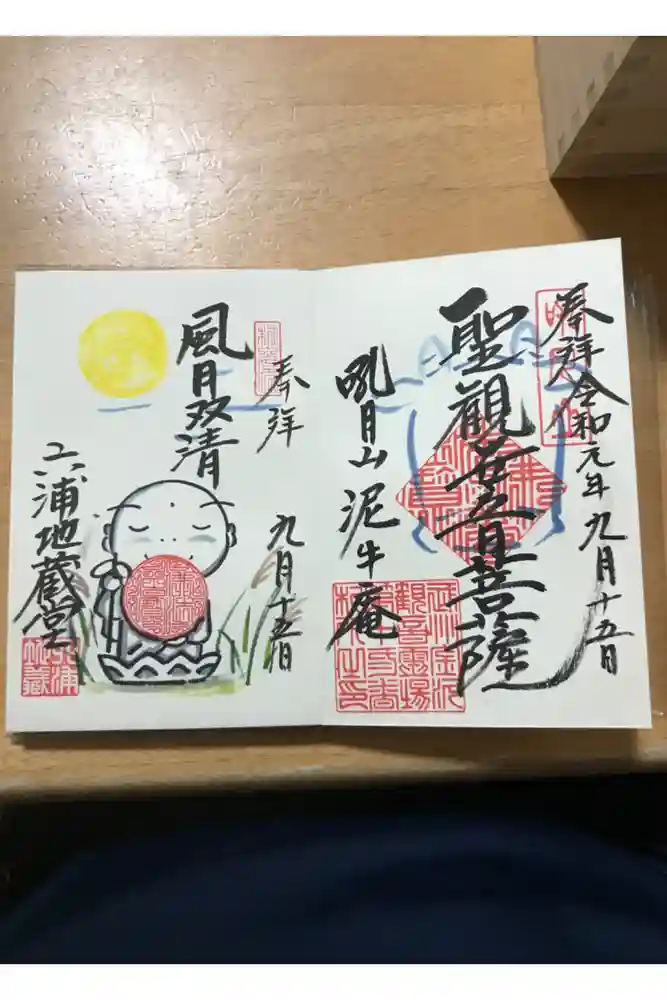 奉拝令和元年九月十五日
聖観世音菩薩
吼月山泥牛庵
奉拝
九月十五日
風月双清
六浦地蔵堂